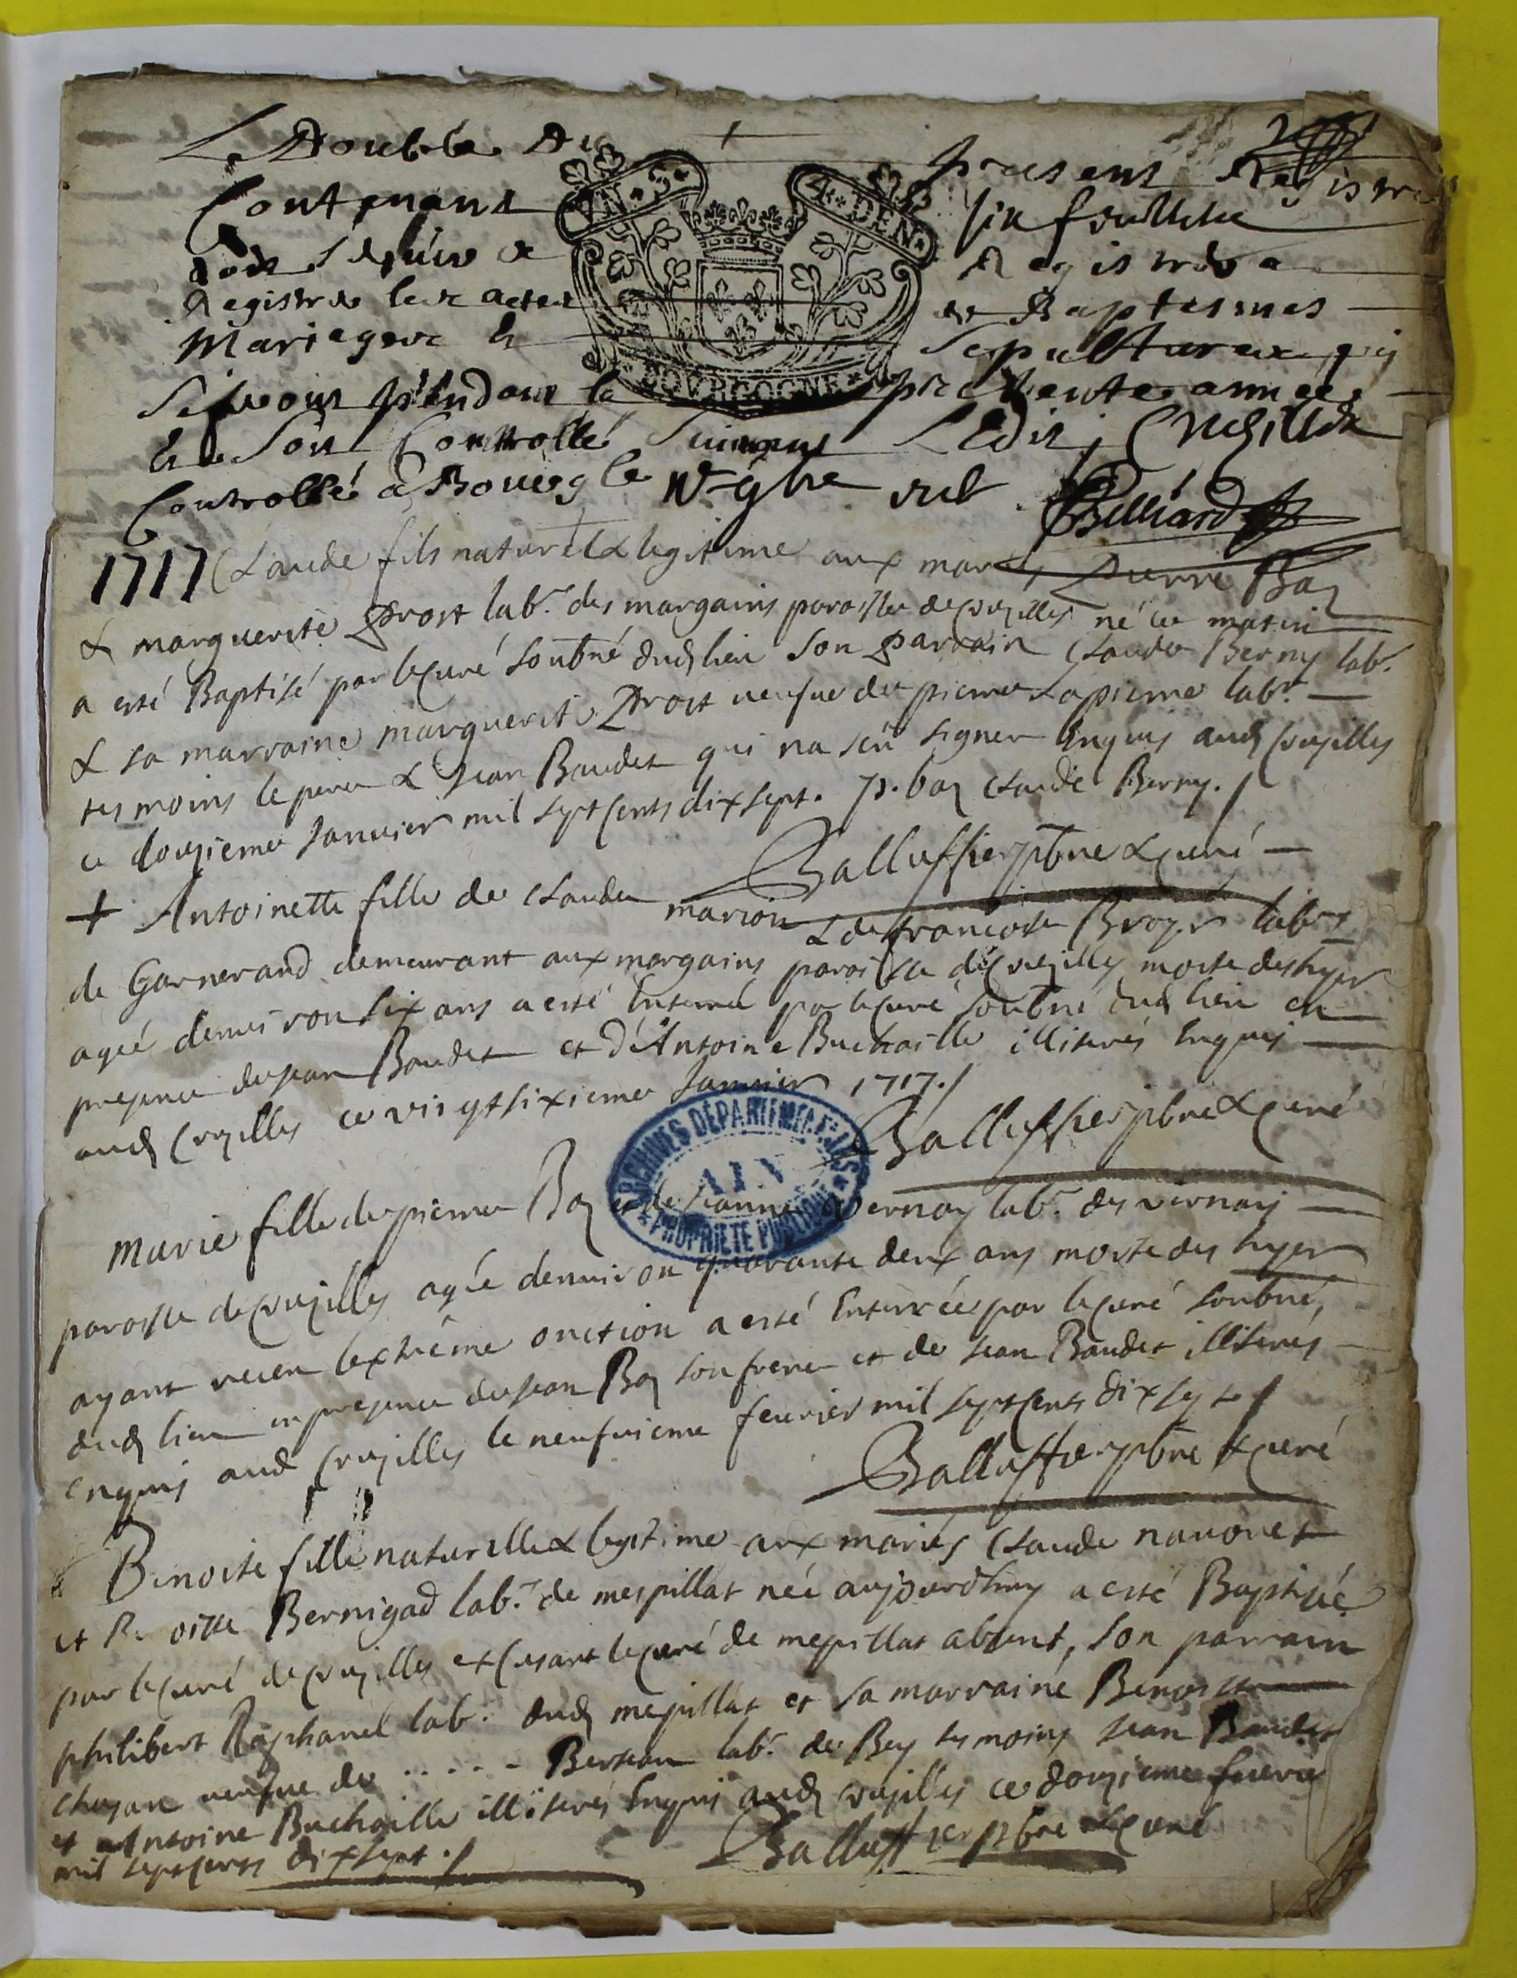 Le Double du present Registre
Contenant six feuillets
doit servir de Registre a
Registrer les actes de Baptesmes
Mariages et Sepultures qui
se feront pendant la presente année
et a son Controllé suivant L'Edit
Controllé a Bourg le 9bre Billiard
UN·S· 4·DEN·
BOURGOGNE
1717 Claude fils naturel & legitime aux mariés Pierre Baj
& marguerite Prost lab.r des margains paroisse de Crujilles né ce matin
a esté Baptisé par le Curé soubné dud lieu son parrain Claude Berny lab.r
& sa marraine marguerite Prost veufue de pierre Lapierre lab.r
tesmoins le pere & Jean Baudet qui na sceu signer Enquis aud Crujilles
ce douzieme Januier mil sept Cents dix sept. p. baj Claude Berny./
Balluffier pbre & Curé
+ Antoinette fille de Claude marion & de francoise Broyer lab.rs
de Garnerand demeurant aux margains paroisse de Crujilles morte des hyer
agée denuiron six ans a esté Enterrée par le Curé soubné dud lieu en
presence de Jean Baudet et d'Antoine Buchaille illiterés Enquis
aud Crujilles ce vingt sixieme Januier 1717./
Balluffier pbre & Curé
ARCHIVES DÉPARTEMENTALES
AIN
PROPRIÉTÉ PUBLIQUE
Marie fille de pierre Baj et de Jeanne Vernay lab.r des vernays
paroisse de Crujilles agée denuiron quarante deux ans morte des hyer
ayant receu lextréme onction a esté Enterrée par le Curé soubné,
dud lieu en presence de Jean Baj son frere et de Jean Baudet illiterés
Enquis aud Crujilles le neufuieme feurier mil sept Cents dix sept./
Balluffier pbre & Curé
Benoite fille naturelle & legitime aux mariés Claude nauouet
et oitte Bernigad lab.r de mespillat née aujourdhuy a esté Baptisée
par le Curé de Crujilles exCusant le Curé de mepillat absent, son parrain
philibert Raphanel lab.r dud mepillat et sa marraine Benoiste
veufue de ..... Berseau lab.r de Bey tesmoins Jean Baudet
et Antoine Buchaille illiterés Enquis aud Crujilles ce douzieme feurier
mil sept Cents dix sept./
Balluffier pbre & Curé